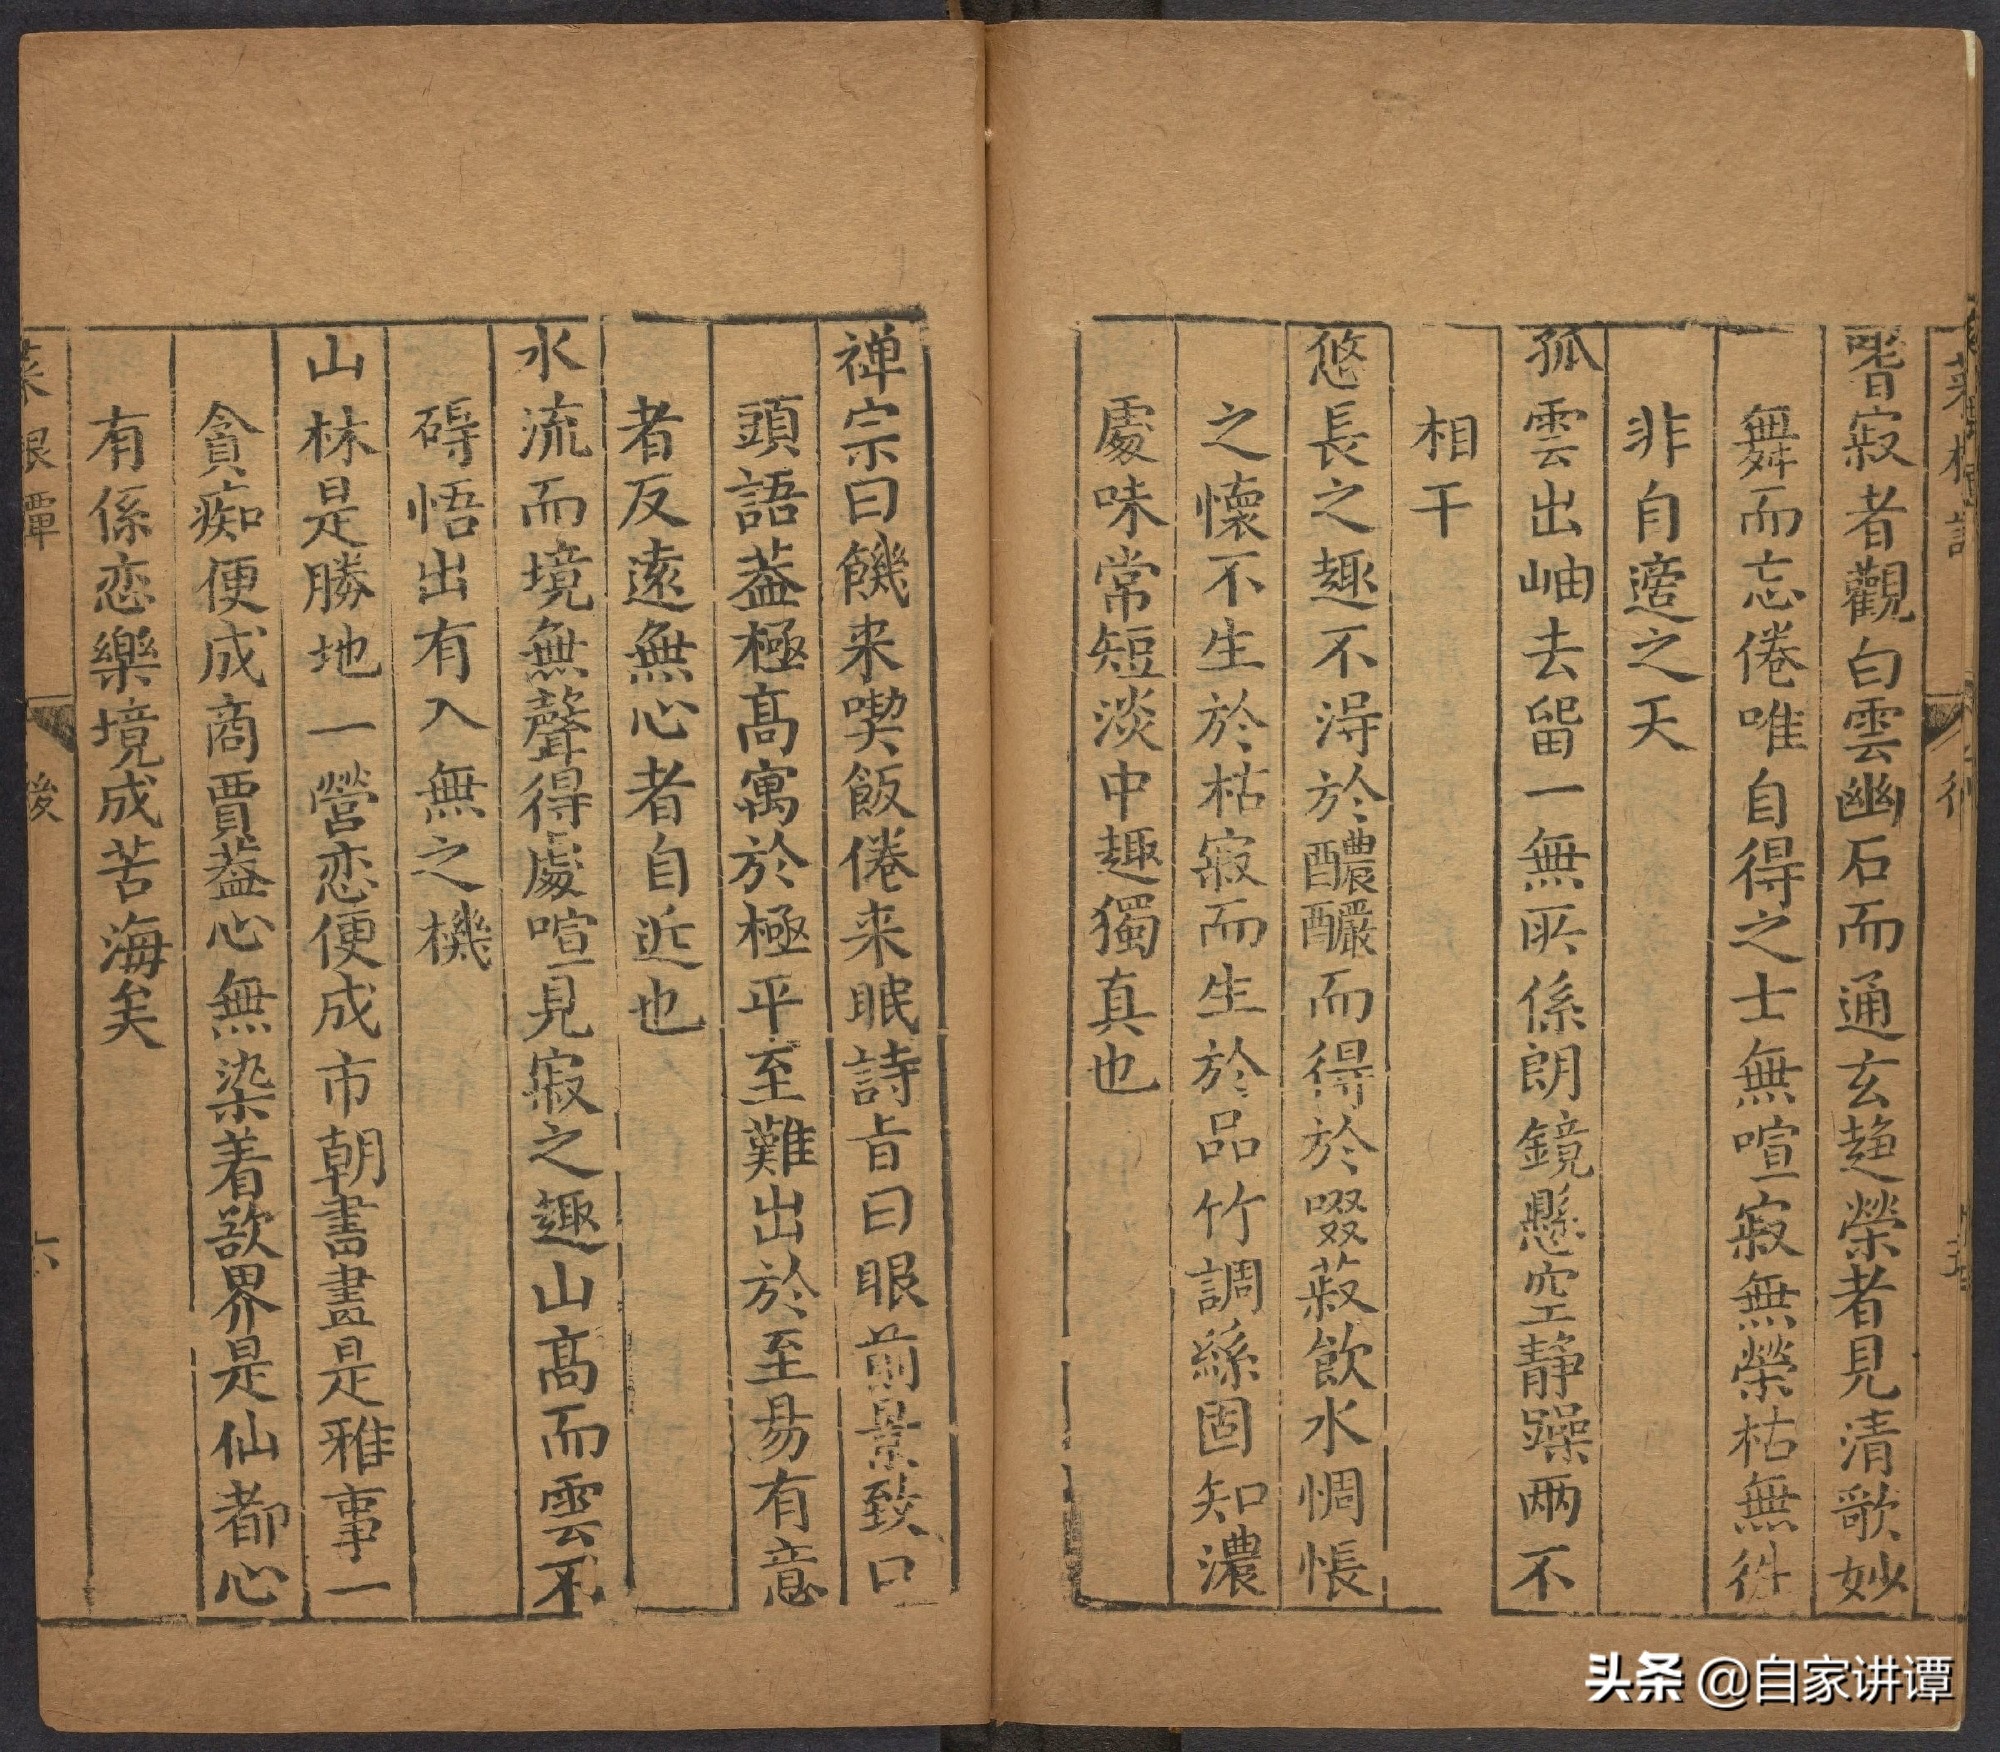 嗜寂者觀白雲幽石而通玄趨榮者見清歌妙
舞而忘倦唯自得之士無喧寂無榮枯無徃
非自適之天
孤雲出岫去留一無所係朗鏡懸空静躁兩不
相干
悠長之趣不淂於醲釅而得於啜菽飲水惆悵
之懷不生於枯寂而生於品竹調絲固知濃
處味常短淡中趣獨真也
禅宗曰饑来喫飯倦来眠詩旨曰眼前景致口
頭語葢極髙寓於極平至難出於至易有意
者反遠無心者自近也
水流而境無聲得處喧見寂之趣山髙而雲不
碍悟出有入無之機
山林是勝地一營恋便成市朝書畫是雅事一
貪痴便成商賈葢心無染着欲界是仙都心
有係恋樂境成苦海矣
後
六
头条 @自家讲谭